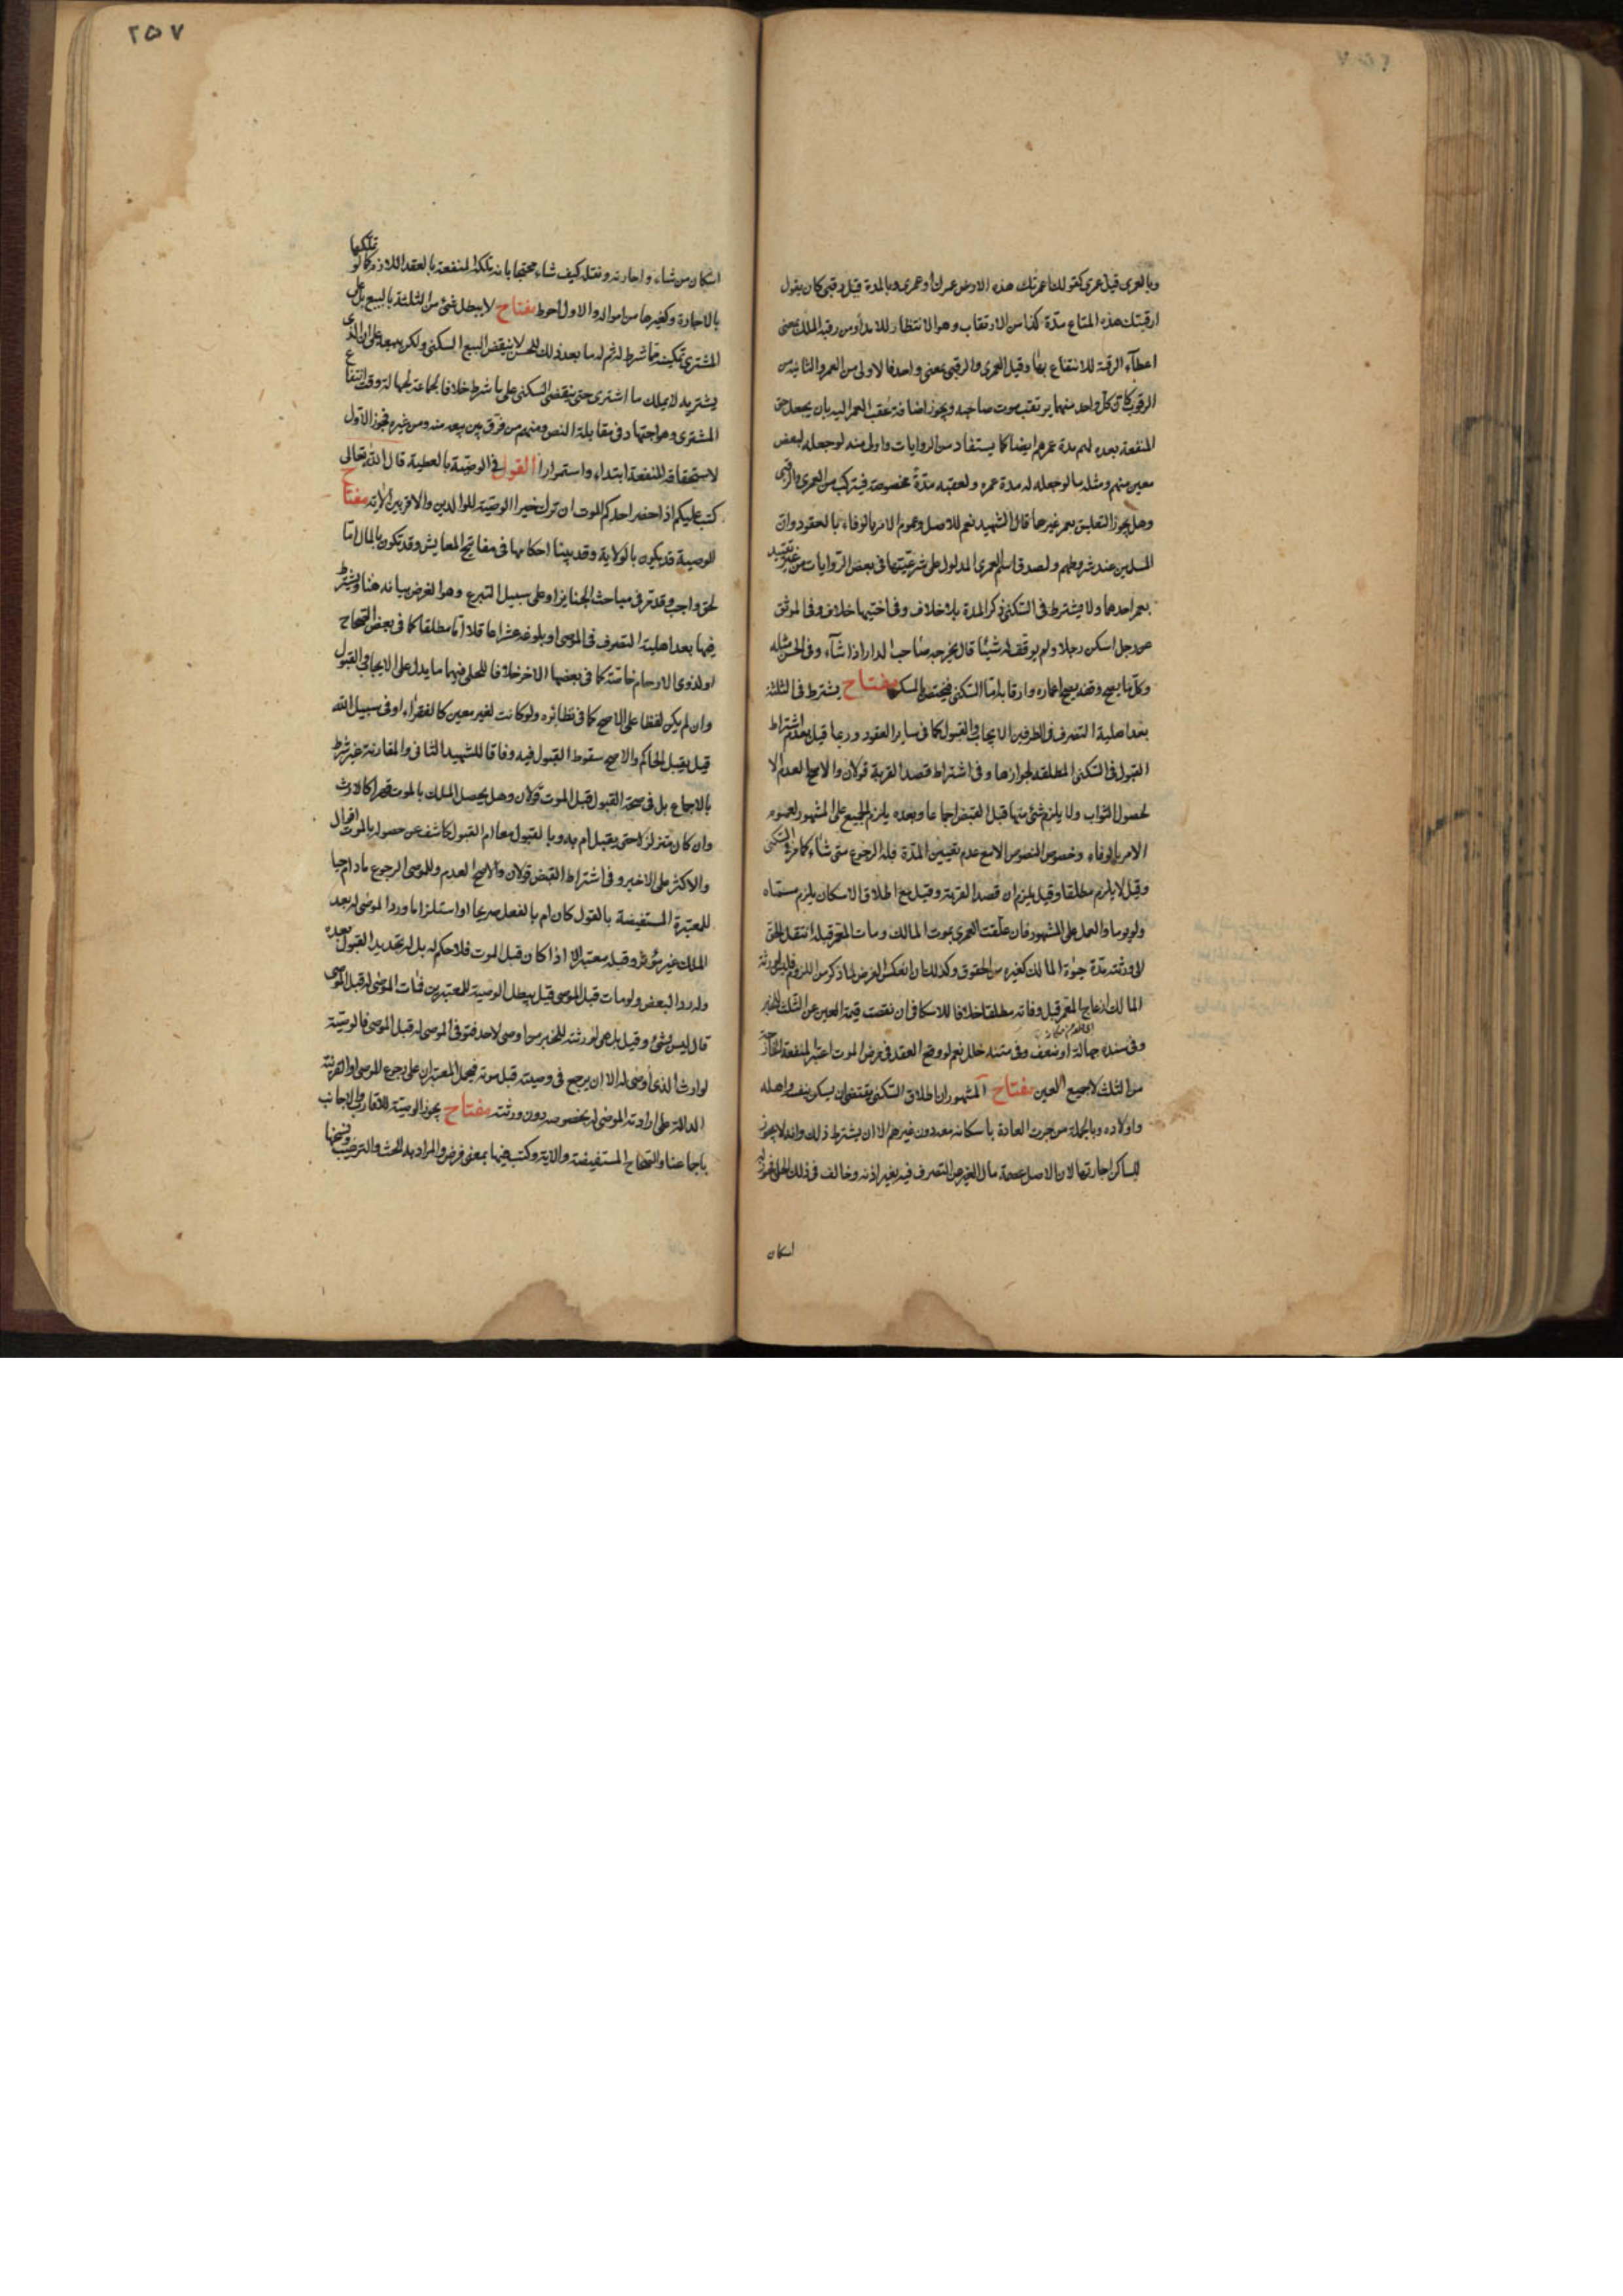 وبالعمرى قيل عمرى كقولنا اعمرتك هذه الارض عمرك او عمرى وبالمدة قيل رقبى كان يقول
ارقبتك هذه المتاع مدة كذا من الارتقاب وهو الانتظار للامد أو من رقبة الملك بمعنى
اعطآء الرقبة للانتفاع بها وقيل العمرى والرقبى بمعنى واحد فالاولى من العمر والثانية من
الرقوب كان كل واحد منهما يرتقب موت صاحبه ويجوز اضافة عقب المعمر اليه بان يجعل حق
المنفعة بعده لهم مدة عمرهم ايضا كما يستفاد من الروايات واولى منه لو جعله لبعض
معين منهم ومثله ما لو جعله له مدة عمره ولعقبه مدة مخصوصة فيتركب من العمرى والرقبى
وهل يجوز التعليق بعمر غيرهما قال الشهيد نعم للاصل وعموم الامر بالوفاء بالعقود وان
المسلمين عند شروطهم ولصدق اسم العمرى المدلول على شرعيتها فى بعض الروايات من غير تقييد
بعمر احدهما ولا يشترط فى السكنى ذكر المدة بلا خلاف وفى اختيها خلاف وفى الموثق
عن رجل اسكن رجلا ولم يوقف له شيئا قال يخرجه صاحب الدار اذا شآء وفى الحسن مثله
وكل ما يصح وقفه يصح اعماره وارقابه اما السكنى فيختص بالمسكن مفتاح يشترط فى الثلثة
بعد اهلية التصرف فى الطرفين الايجاب والقبول كما فى ساير العقود وربما قيل بعدم اشتراط
القبول فى السكنى المطلقة لجوازها وفى اشتراط قصد القربة قولان والاصح العدم الا
لحصول الثواب ولا يلزم شئ منها قبل القبض اجماعا وبعده يلزم الجميع على المشهور لعموم
الامر بالوفاء وخصوص النصوص الا مع عدم تعيين المدة فله الرجوع متى شاء كما مر فى السكنى
وقيل لا يلزم مطلقا وقيل يلزم ان قصد القربة وقيل مع اطلاق الاسكان يلزم مسماه
ولو يوما والعمل على المشهور فان علقت العمرى بموت المالك ومات المعمر قبله انتقل الحق
الى ورثته مدة حيوة المالك كغيره من الحقوق وكذلك ان انعكس الفرض لما ذكر من اللزوم فليس لورثة
المالك ازعاج المعمر قبل وفاته مطلقا خلافا للاسكافى ان نقصت قيمة العين عن الثلث للخبر
وفى سنده جهالة او ضعف وفى متنه خلل نعم لو وقع العقد فى مرض الموت اعتبر المنفعة الخارجة
من الثلث لا جميع العين مفتاح المشهور ان اطلاق السكنى يقتضى ان يسكن بنفسه واهله
واولاده وبالجملة من جرت العادة باسكانه معه دون غيرهم الا ان يشترط ذلك وانه لا يجوز
للساكن اجارتها لان الاصل عصمة مال الغير عن التصرف فيه بغير اذنه وخالف فى ذلك الحلى فجوز له
اسكان
٢٥٧
اسكان من شاء واجارته ونقله كيف شاء محتجا بانه يملك المنفعة بالعقد اللازم وكما لو تملكها
بالاجارة وكغيرها من امواله والاول احوط مفتاح لا يبطل شئ من الثلثة بالبيع بل على
المشترى تمكينه مما شرط له ثم له ما بعد ذلك للحسن لا ينقض البيع السكنى ولكن يبيعه على ان الذى
يشتريه لا يملك ما اشترى حتى ينقضى السكنى على ما شرط خلافا لجماعة لجهالة وقت انتفاع
المشترى وهو اجتهاد فى مقابلة النص ومنهم من فرق بين بيعه منه ومن غيره فجوز الاول
لاستحقاقه المنفعة ابتداء واستمرارا القول فى الوصية بالعطية قال الله تعالى
كتب عليكم اذا حضر احدكم الموت ان ترك خيرا الوصية للوالدين والاقربين الاية مفتاح
الوصية قد يكون بالولاية وقد بينا احكامها فى مفاتيح المعايش وقد تكون بالمال اما
لحق واجب وقد مر فى مباحث الجنايز او على سبيل التبرع وهو الغرض بيانه هنا ويشترط
فيها بعد اهلية التصرف فى الموصى او بلوغه عشرا عاقلا اما مطلقا كما فى بعض الصحاح
او لذوى الارحام خاصة كما فى بعضها الاخر خلافا للحلى فيهما ما يدل على الايجاب والقبول
وان لم يكن لفظا على الاصح كما فى نظائره ولو كانت لغير معين كالفقراء او فى سبيل الله
قيل يقبل الحاكم والاصح سقوط القبول فيه وفاقا للشهيد الثانى والمقارنة غير شرط
بالاجماع بل فى صحة القبول قبل الموت قولان وهل يحصل الملك بالموت قهرا كالارث
وان كان متزلزلا حتى يقبل ام به وبالقبول معا ام القبول كاشف عن حصوله بالموت اقوال
والاكثر على الاخير وفى اشتراط القبض قولان والاصح العدم وللموصى الرجوع ما دام حيا
للمعتبرة المستفيضة بالقول كان ام بالفعل صريحا او استلزاما ورد الموصى له بعد
الملك غير مؤثر وقبله معتبر الا اذا كان قبل الموت فلا حكم له بل له تجديد القبول بعده
وله رد البعض ولو مات قبل الموصى قيل يبطل الوصية للمعتبرين فمات الموصى له قبل الموصى
قال ليس بشئ وقيل بل هى لورثته للخبر من اوصى لاحد فتوفى الموصى له قبل الموصى فالوصية
لوارث الذى اوصى له الا ان يرجع فى وصيته قبل موته فيحمل المعتبران على رجوع الموصى او القرينة
الدالة على ارادته الموصى له بخصوصه دون ورثته مفتاح يجوز الوصية للاقارب والاجانب
باجماعنا والصحاح المستفيضة والاية وكتب فيها بمعنى فرض والمراد به الحث والترغيب ونسخها